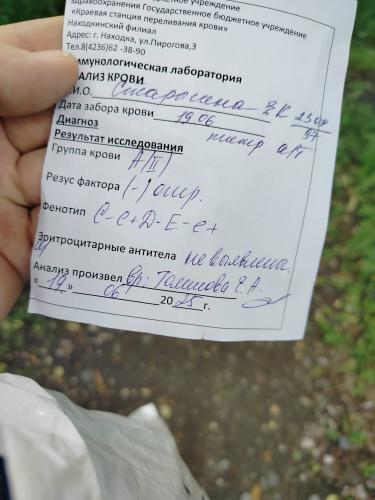 джетное учреждение
здравоохранения Государственное бюджетное учреждение
«Краевая станция переливания крови»
Находкинский филиал
Адрес: г. Находка, ул.Пирогова,3
Тел.8(4236)62 -38-90
ммунологическая лаборатория
АЛИЗ КРОВИ
.И.О.
Дата забора крови 19 06
Диагноз титр а/т
Результат исследования
Группа крови A(II)
Резус фактора (-) отр.
Фенотип C-c+D-E-e+
Эритроцитарные антитела не выявлены.
Анализ произвел Вр.
« 19 » 06 2025 г.